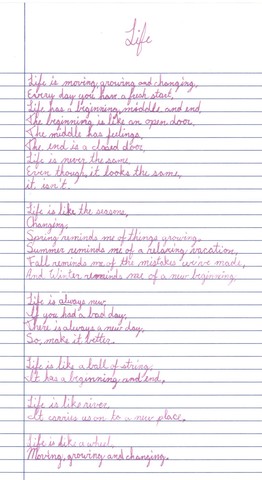 Life
Life is moving, growing and changing,
Every day you have a fresh start,
Life has a beginning, middle, and end,
The beginning is like an open door,
The middle has feelings,
The end is a closed door,
Life is never the same,
Even though, it looks the same,
it isn't.
Life is like the seasons,
Changing:
Spring reminds me of things growing,
Summer reminds me of a relaxing vacation,
Fall reminds me of the mistakes we've made,
And Winter reminds me of a new beginning.
Life is always new,
If you had a bad day,
There is always a new day,
So, make it better.
Life is like a ball of string;
It has a beginning and end,
Life is like river,
It carries us on to a new place,
Life is like a wheel,
Moving, growing and changing.